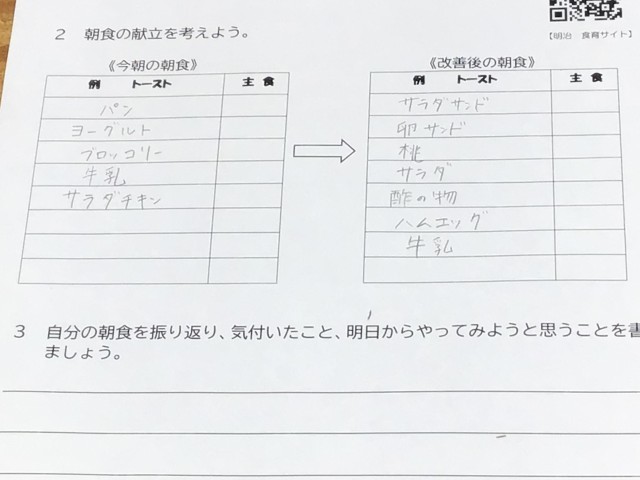 【明治 食育サイト】
2 朝食の献立を考えよう。
《今朝の朝食》
例 トースト 主食
パン
ヨーグルト
ブロッコリー
牛乳
サラダチキン
《改善後の朝食》
例 トースト 主食
サラダサンド
卵サンド
桃
サラダ
酢の物
ハムエッグ
牛乳
3 自分の朝食を振り返り、気付いたこと、明日からやってみようと思うことを書
ましょう。